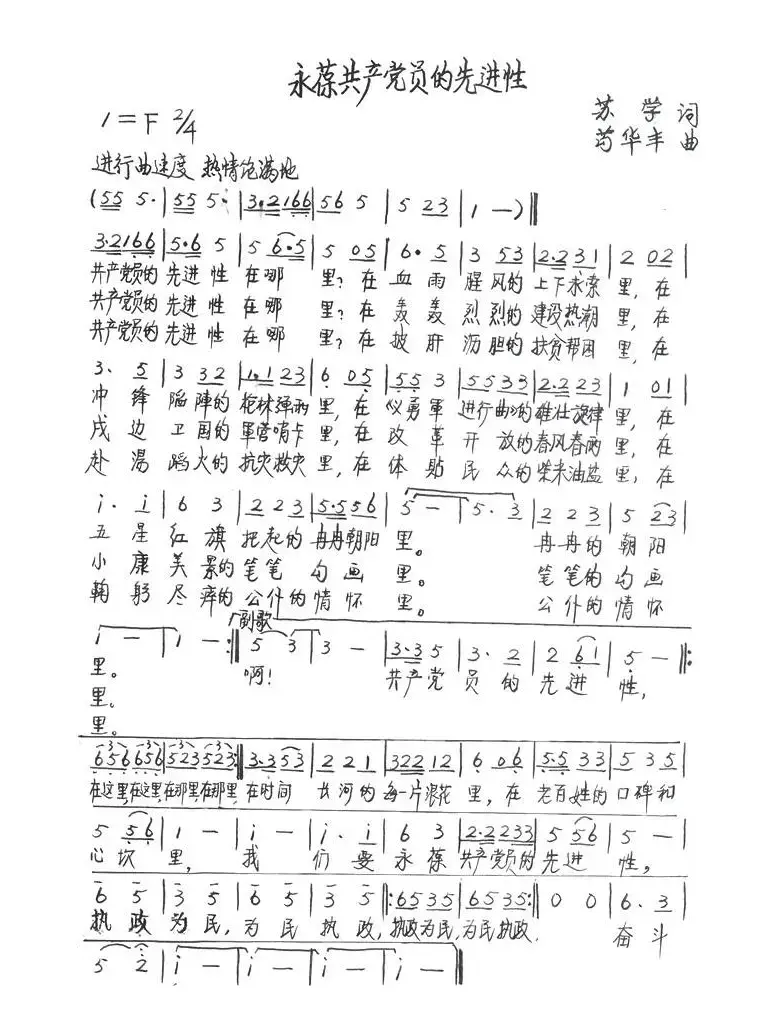 永葆共产党员的先进性
1=F 2/4
苏学 词
芍华丰 曲
进行曲速度 热情饱满地
(55 5· | 55 5· | 3·2166 | 56 5 | 5 23 | 1 — ) ‖
3·2166 | 5·6 5 | 5 6·5 | 5 05 | 6·5 | 3 53 | 2·231 | 2 02 |
共产党员的 先进 性 在哪 里?在 血雨 腥风的 上下求索 里,在
共产党员的 先进 性 在哪 里?在 轰轰 烈烈的 建设热潮 里,在
共产党员的 先进 性 在哪 里?在 披肝 沥胆的 扶贫帮困 里,在
3· 5 | 3 32 | 1·123 | 6 05 | 55 3 | 5533 | 2·223 | 1 01 |
冲锋 陷陣的 枪林弹雨 里,在 义勇軍 进行曲的 雄壮旋律 里,在
戍边 卫国的 軍营哨卡 里,在 改革开放的 春风春雨 里,在
赴湯 蹈火的 抗灾救灾 里,在 体贴民众的 柴米油盐 里,在
i· i | 6 3 | 2 2 3 | 5·556 | 5 — | 5· 3 | 2 2 3 | 5 23 |
五星 红旗 托起的 冉冉朝阳 里。 冉冉的 朝阳
小康 美景的 笔笔 勾画 里。 笔笔的 勾画
鞠躬 尽瘁的 公仆的 情怀 里。 公仆的 情怀
副歌
i — | 1 — :‖ 5 3 | 3 — | 3·35 | 3· 2 | 2 61 | 5 — ‖:
里。 啊! 共产党 员的 先进 性,
里。
里。
656 656 | 523 523 :‖ 3·353 | 2 2 1 | 32212 | 6 06 | 5·5 33 | 5 3 5 |
在这里,在这里,在那里,在那里,在时间 长河的 每一片浪花 里,在 老百姓的 口碑和
5 56 | 1 — | i — | i· i | 6 3 | 2·2233 | 5 56 | 5 — |
心坎 里, 我 们要 永葆 共产党员的 先进 性,
6 5 | 3 5 | 6 5 | 3 5 ‖: 6535 | 6535 :‖ 0 0 | 6· 3 |
执政 为民,为民 执政,执政为民,为民执政. 奋斗
5 2 | i — | i — | i — | i — ‖